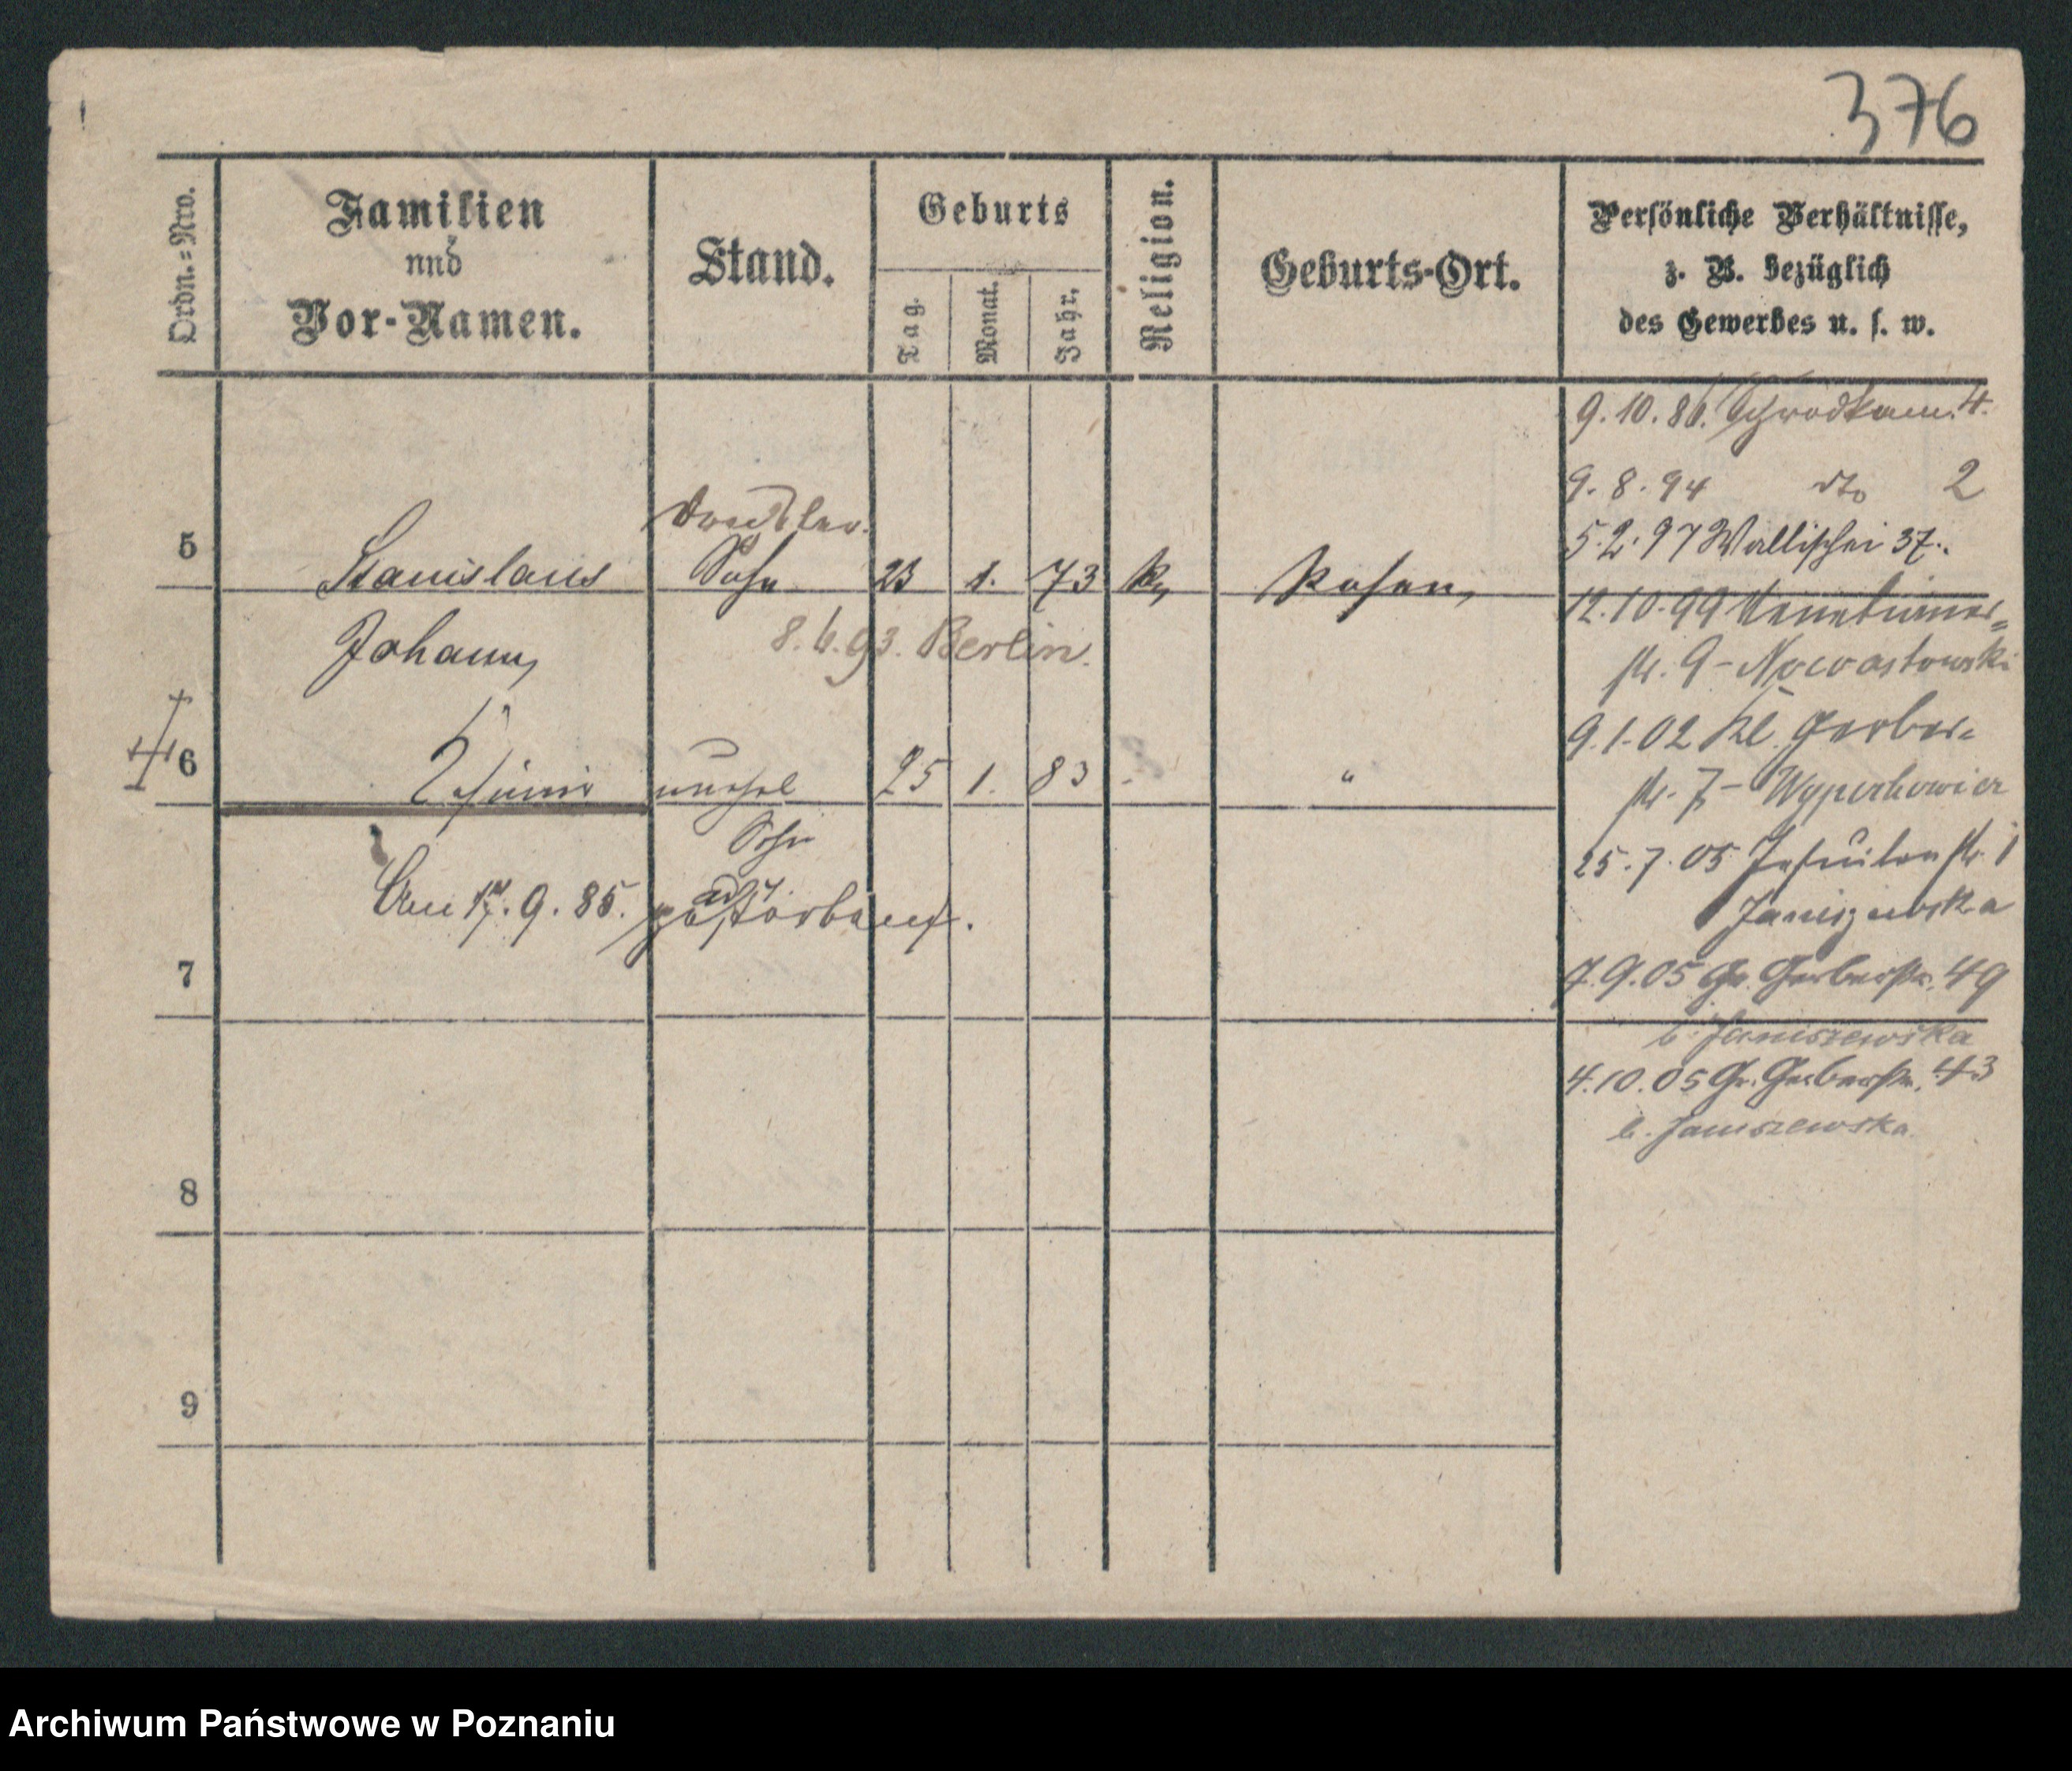 376
Ordn.-Nro.
Familien
und
Vor-Namen.
Stand.
Geburts
Tag.
Monat.
Jahr.
Religion.
Geburts-Ort.
Persönliche Verhältnisse,
z. B. bezüglich
des Gewerbes u. s. w.
9.10.86. Schrodkam. 4.
9.8.94 dto 2
Drechsler.
5 Stanislaus Sohn 23 1. 73 k, Posen,
5.2.97 Wallischei 37.
Johann,
8.6.93. Berlin.
12.10.99 Venetianer=
str. 9 - Nowastowski
6 unehel 25 1. 83 - "
Sohn
9.1.02 Kl. Gerber-
str. 7 -
25.7.05 Jesuitenstr. 1
Janiszewska
Am 17. 9. 85. gestorben.
7
7.9.05 Gr. Gerberstr. 49
b. Janiszewska
4.10.05 Gr. Gerberstr. 43
b. Janiszewska
8
9
Archiwum Państwowe w Poznaniu